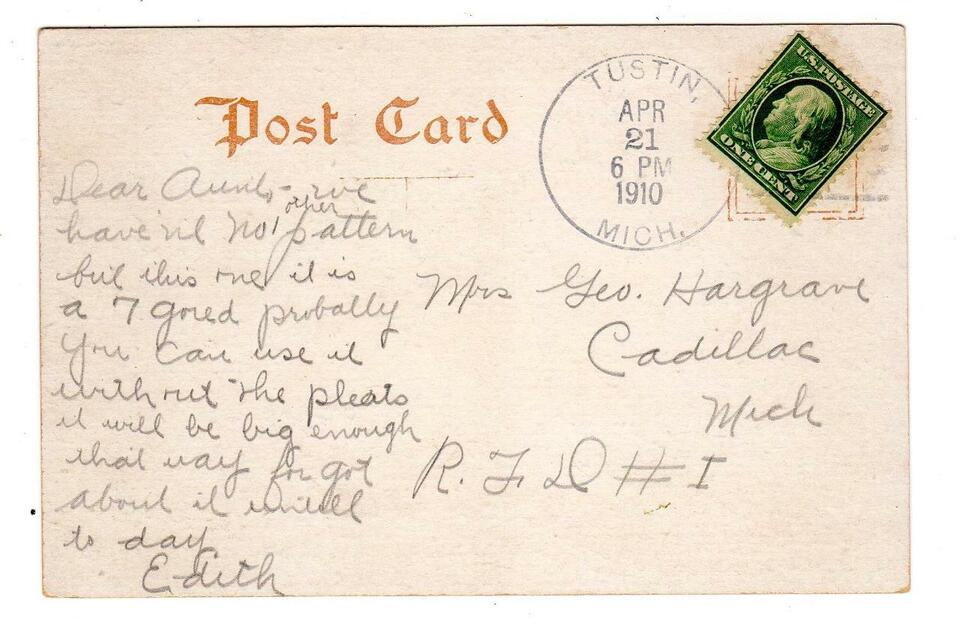 Post Card
TUSTIN,
APR
21
6 PM
1910
MICH.
U.S. POSTAGE
ONE CENT
Dear Aunt,- we
haven't No other pattern
but this one it is
a 7 gored probally
you can use it
without the pleats
it will be big enough
that way forgot
about it untill
to day
Edith
Mrs Geo. Hargrave
Cadillac
Mich
R. F. D # 1